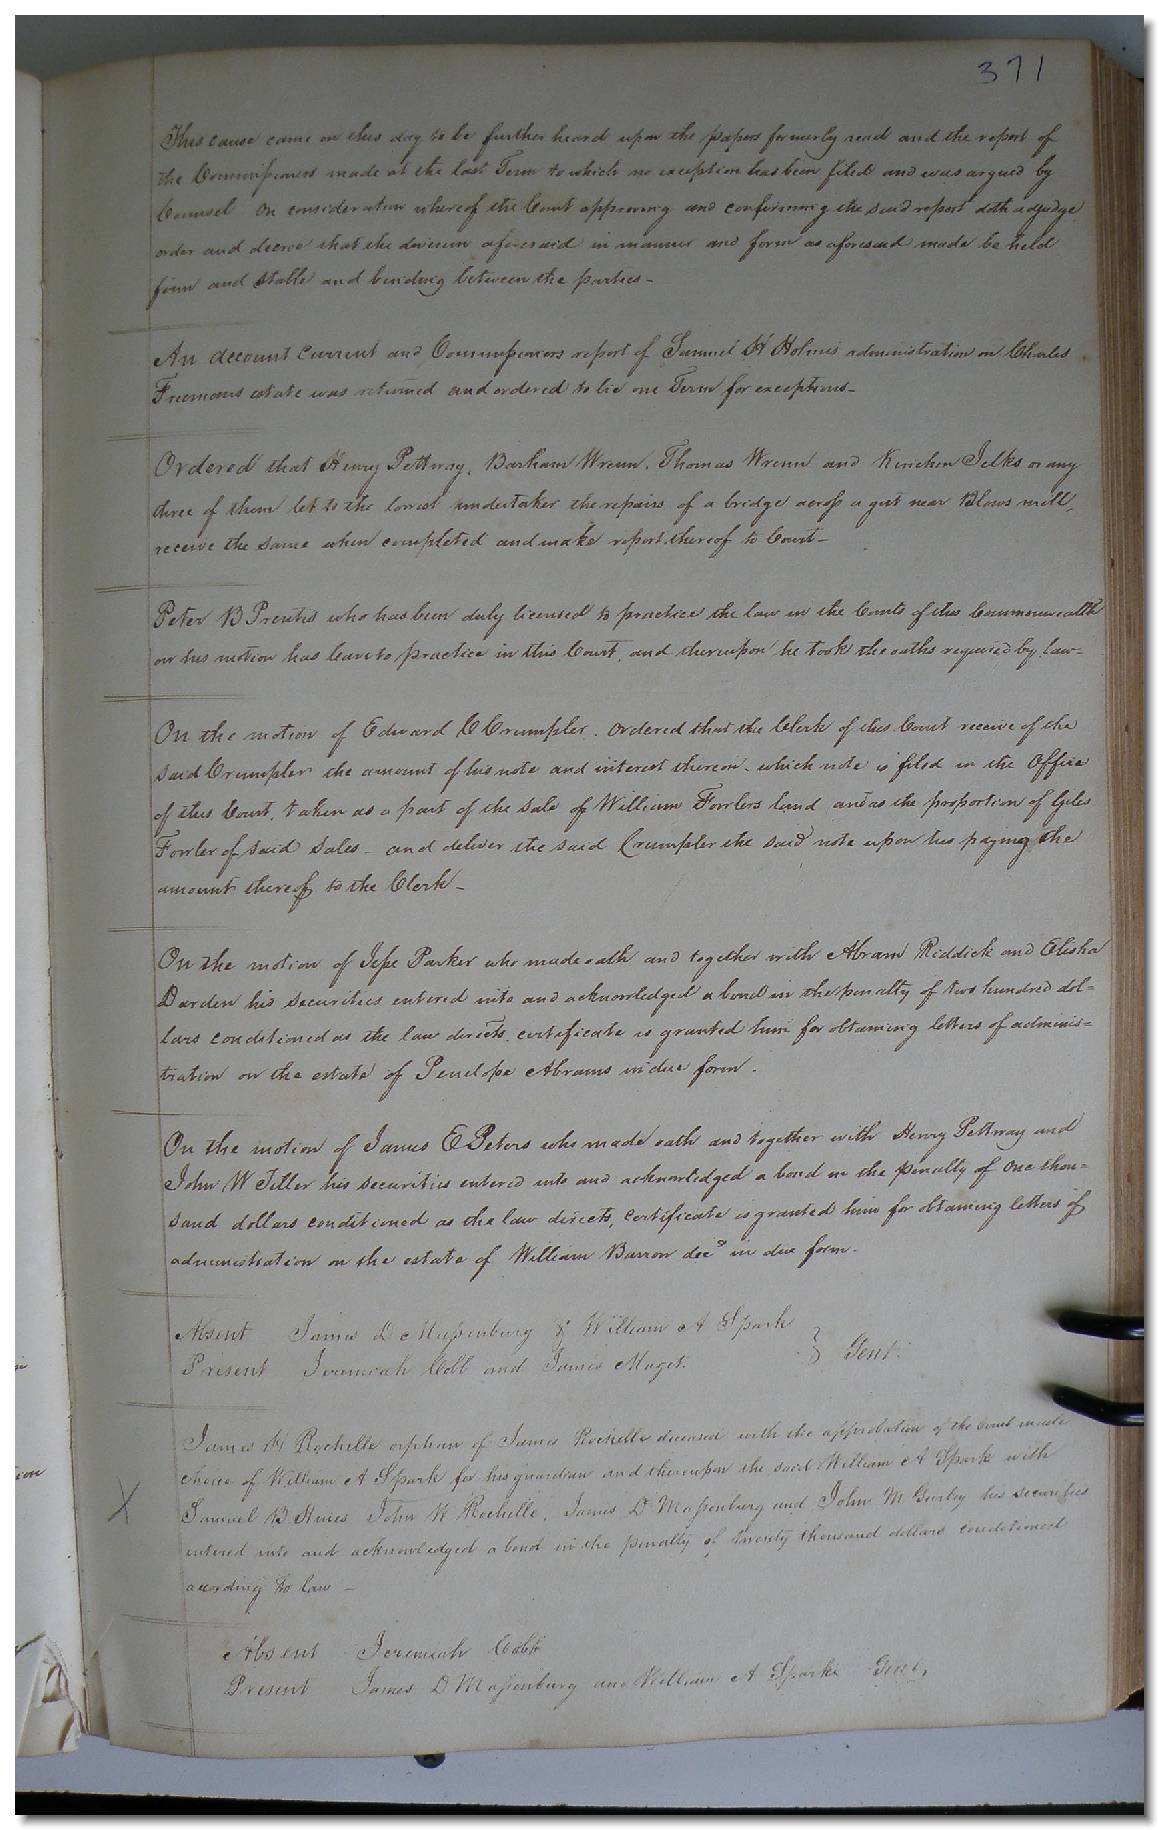 371
This cause came on this day to be further heard upon the papers formerly read and the report of
the Commissioners made at the last Term to which no exception has been filed and was argued by
Counsel On consideration whereof the Court approving and confirming the said report doth adjudge
order and decree that the division aforesaid in manner and form as aforesaid made be held
firm and stable and binding between the parties -
An account current and Commissioners report of Samuel H Holmes administration on Charles
Freemans estate was returned and ordered to lie one Term for exceptions -
Ordered that Henry Pettway, Barham Wrenn, Thomas Wrenn and Kinchen Jelks or any
three of them let to the lowest undertaker the repairs of a bridge across a gut near Blows mill,
receive the same when completed and make report thereof to Court -
Peter B Prentis who has been duly licensed to practice the law in the Courts of this Commonwealth
on his motion has leave to practice in this Court, and thereupon he took the oaths required by law -
On the motion of Edward C Crumpler. Ordered that the Clerk of this Court receive of the
said Crumpler the amount of his note and interest thereon - which note is filed in the Office
of this Court, taken as a part of the sale of William Fowlers land and as the proportion of Giles
Fowler of said sales - and deliver the said Crumpler the said note upon his paying the
amount thereof to the Clerk -
On the motion of Jesse Parker who made oath and together with Abram Riddick and Elisha
Darden his securities entered into and acknowledged a bond in the penalty of two hundred dol=
lars conditioned as the law directs, certificate is granted him for obtaining letters of adminis=
tration on the estate of Penelope Abrams in due form.
On the motion of James E Peters who made oath and together with Henry Pettway and
John W Teller his securities entered into and acknowledged a bond in the penalty of One thou=
sand dollars conditioned as the law directs, certificate is granted him for obtaining letters of
administration on the estate of William Barron decd in due form.
Absent James D Massenburg & William A Spark
Present Jeremiah Cobb and James Maget. } Gent.
James H Rochelle orphan of James Rochelle deceased with the approbation of the Court made
choice of William A Spark for his guardian and thereupon the said William A Spark with
X
Samuel B Hines John W Rochelle, James D Massenburg and John M Gurley his securities
entered into and acknowledged a bond in the penalty of twenty thousand dollars conditioned
according to law -
Absent Jeremiah Cobb
Present James D Massenburg and William A Spark Gent,